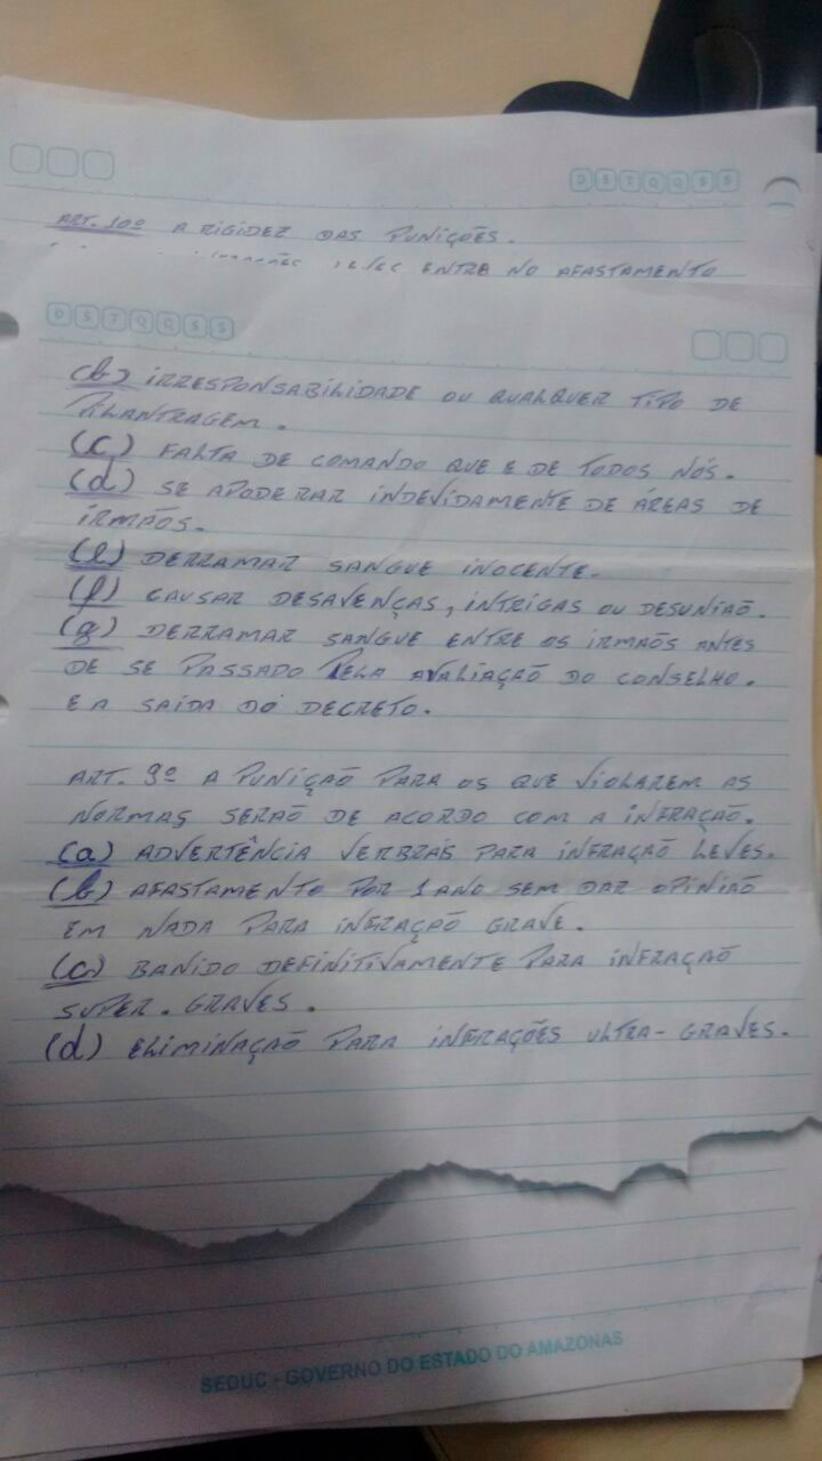 D S T Q Q S S
ART. 10º A RIGIDEZ DAS PUNIÇÕES.
ENTRE NO AFASTAMENTO
D S T Q Q S S
(b) IRRESPONSABILIDADE OU QUALQUER TIPO DE
PILANTRAGEM.
(c) FALTA DE COMANDO QUE E DE TODOS NÓS.
(d) SE APODERAR INDEVIDAMENTE DE ÁREAS DE
IRMÃOS.
(e) DERRAMAR SANGUE INOCENTE.
(f) CAUSAR DESAVENÇAS, INTRIGAS OU DESUNIAÕ.
(g) DERRAMAR SANGUE ENTRE OS IRMAÕS ANTES
DE SE PASSADO PELA AVALIAÇAÕ DO CONSELHO.
E A SAÍDA DO DECRETO.
ART. 9º A PUNIÇAÕ PARA OS QUE VIOLAREM AS
NORMAS SERAÕ DE ACORDO COM A INFRAÇAÕ.
(a) ADVERTÊNCIA VERBRAIS PARA INFRAÇAÕ LEVES.
(b) AFASTAMENTO POR 1 ANO SEM DAR OPINIAÕ
EM NADA PARA INFRAÇAÕ GRAVE.
(c) BANIDO DEFINITIVAMENTE PARA INFRAÇAÕ
SUPER. GRAVES.
(d) ELIMINAÇAÕ PARA INFRAÇÕES ULTRA-GRAVES.
SEDUC - GOVERNO DO ESTADO DO AMAZONAS